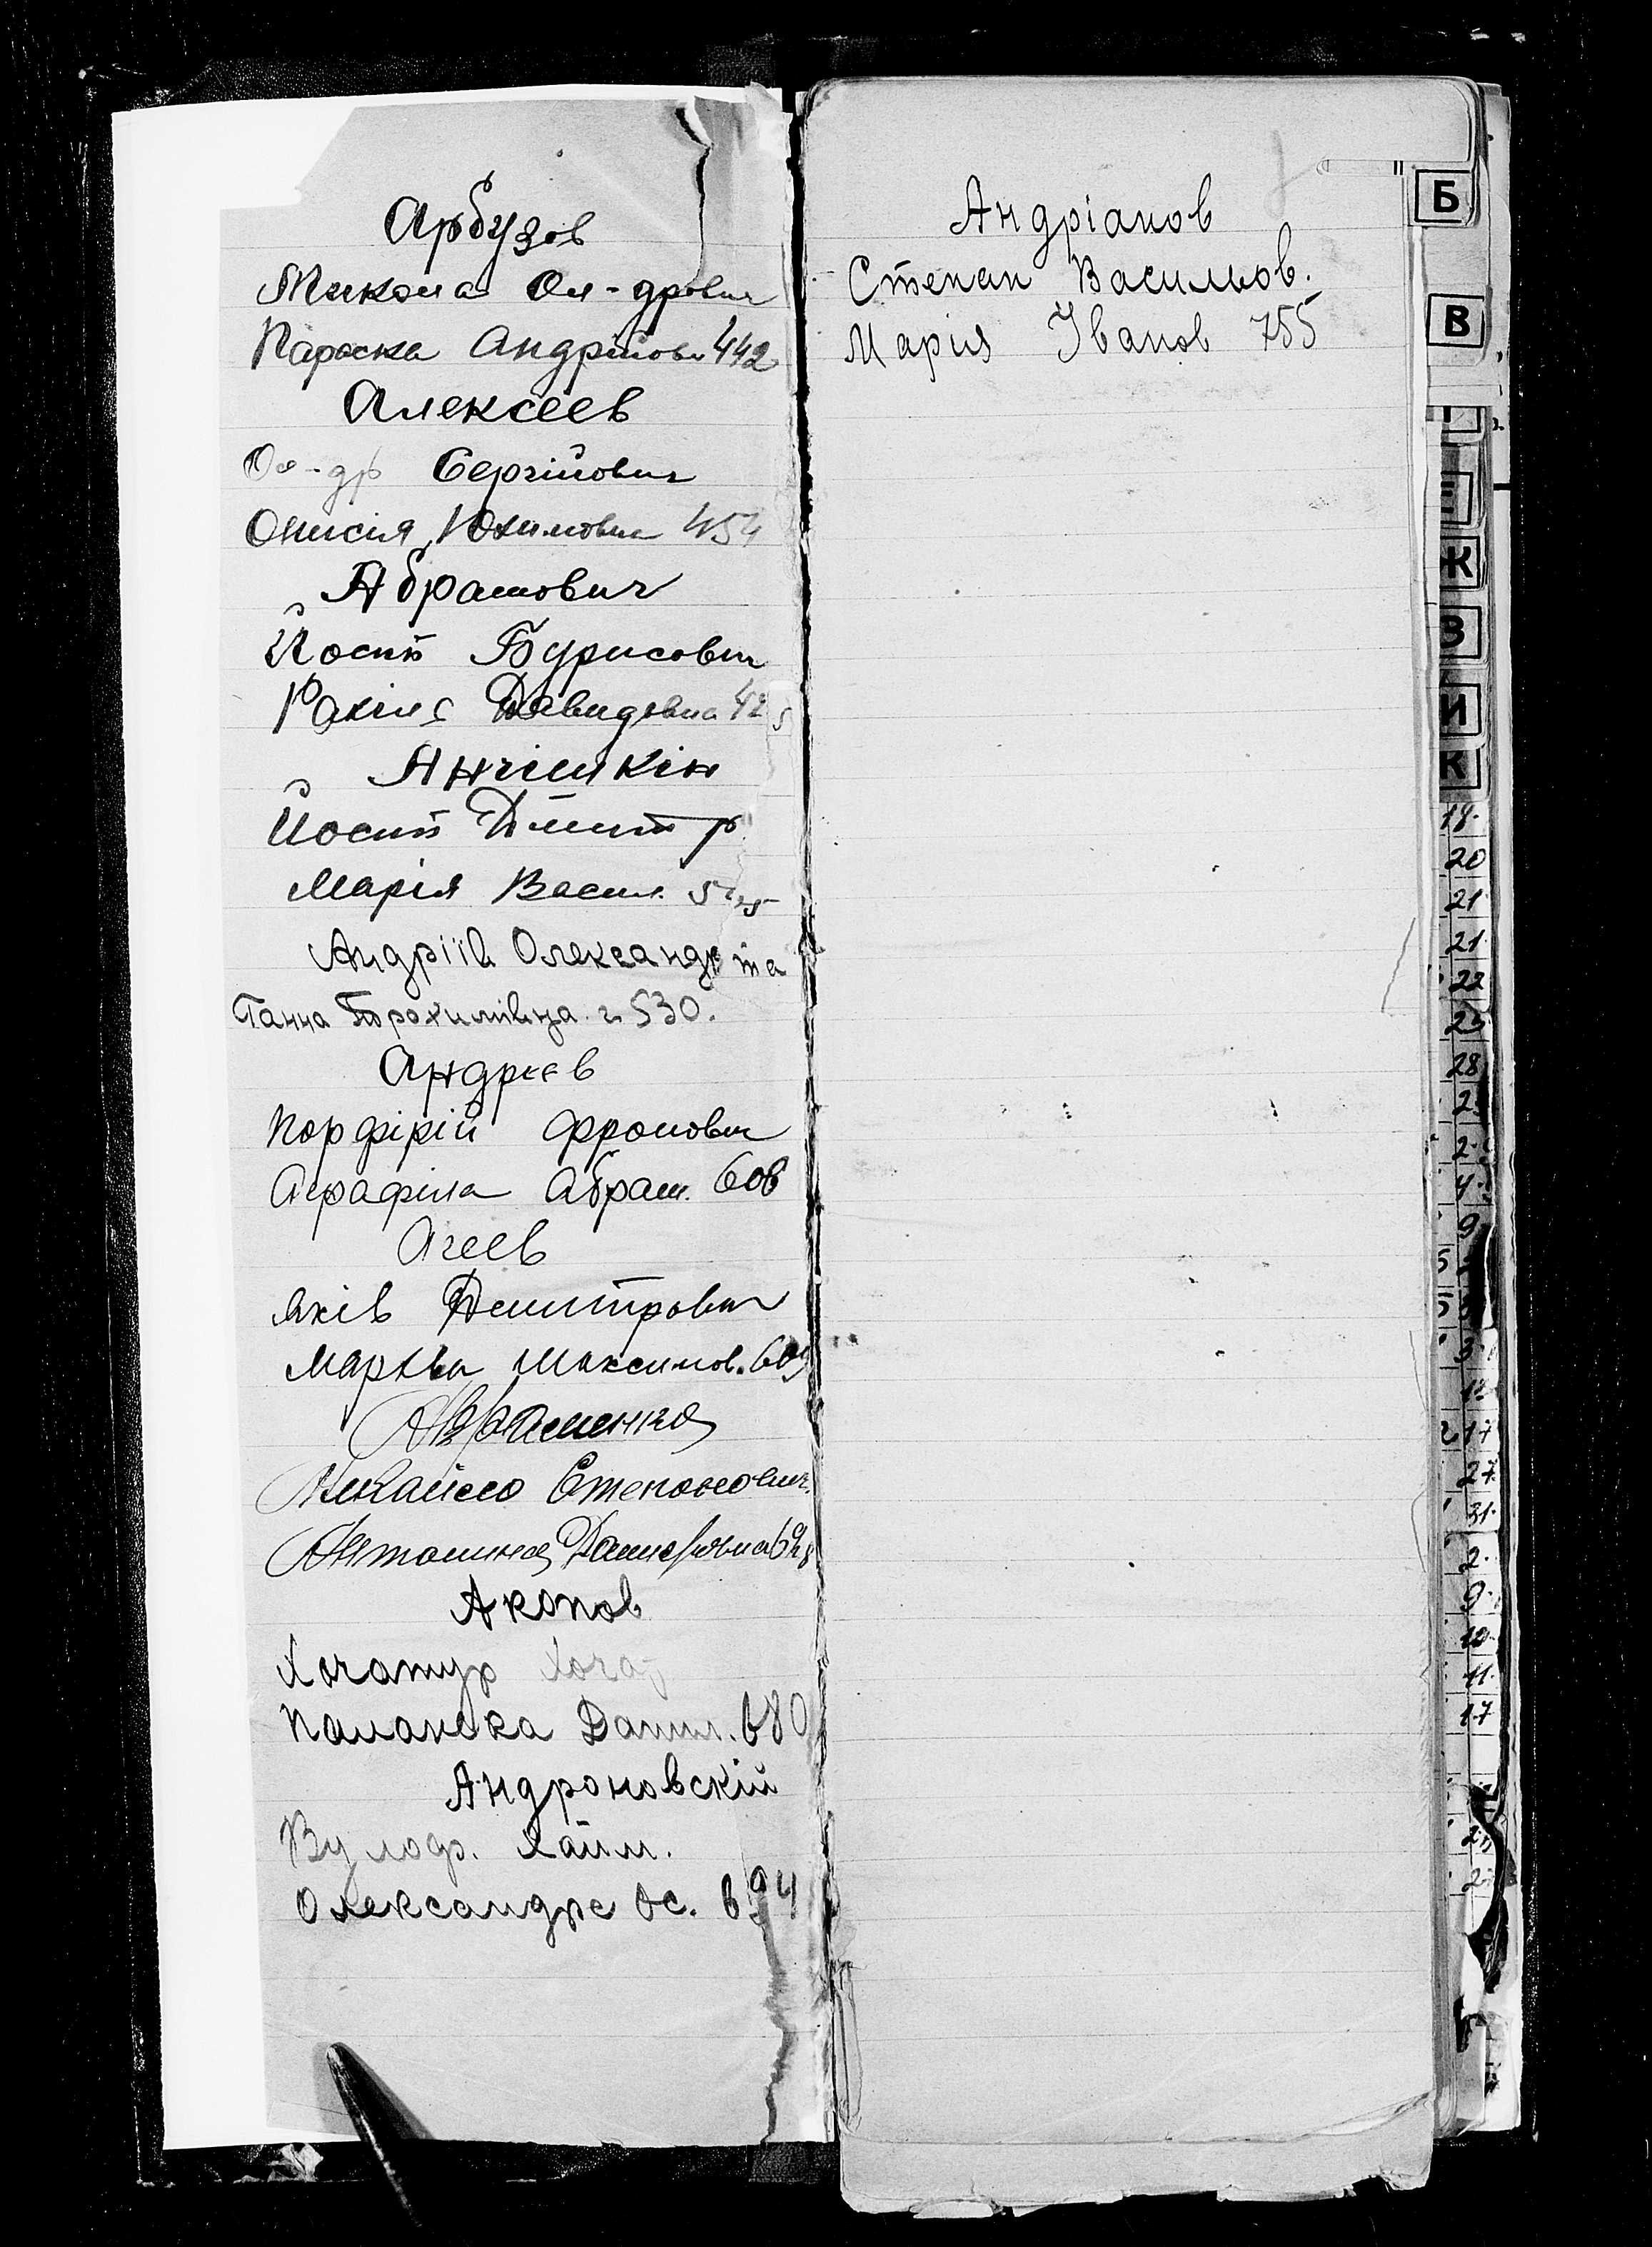 Арбузов
Микола Ол-дрович
Параска Андрійовн 442
Алексєев
Ол-др Сергійович
Онисія Юхимовна 454
Абрамович
Йосип Бурисович
Рахіля Давидовна 42
Анчішкін
Йосип Дмитр
Марія Васил.
Андріїв Олександр та
Ганна Трохимівна г. 530.
Андрієв
Порфірій Фролович
Абрам. 608
Агеев
Яків Дмитрович
Марфа Максимов.
Авраменко
Михайло Степанович
Антонина
Акопов
Хачатур Хача
Палажка Данил. 680
Андроновскій
Вулоф. Хаїм.
Олександра Ос. 694
Андріанов
Степан Васильов.
Мария Іванов 755
Б
В
Ж
З
И
К
18.
20
21
21
22
28
2.
9
17
27.
31.
2.
9.
10.
11.
17